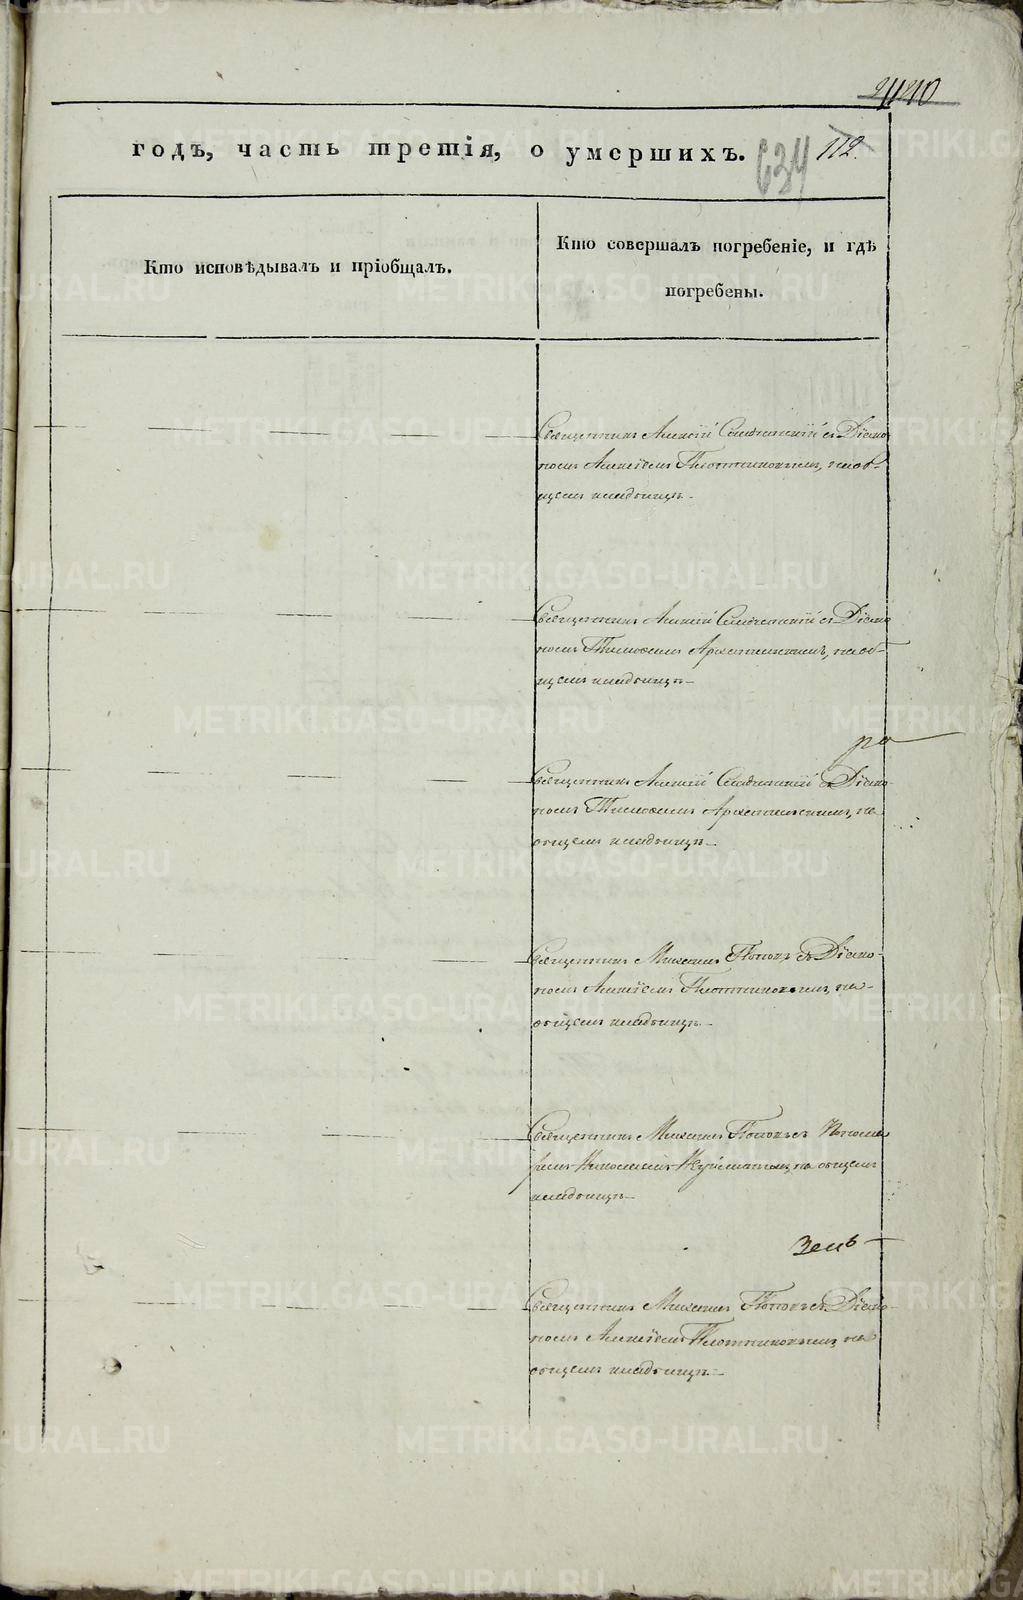 240
годъ, часть третія, о умершихъ.
634
112.
Кто исповѣдывалъ и пріобщалъ.
Кто совершалъ погребеніе, и гдѣ
погребены.
Священникъ Алексій с Діако
номъ Алексіемъ Плотниковымъ, на об-
щемъ кладбищѣ.
Священникъ Алексій с Діако
номъ Тимофеемъ Архангельскимъ, на об-
щемъ кладбищѣ.
ра
Священникъ Алексій с Діако-
номъ Тимофеемъ Архангельскимъ, на
общемъ кладбищѣ.
Священникъ Михаилъ Поповъ съ Діако-
номъ Алексіемъ Плотниковымъ, на-
общемъ кладбищѣ.
Священникъ Михаилъ Поповъ съ Понома
ремъ Николаемъ на общемъ
кладбищѣ.
Зенъ
Священникъ Михаилъ Поповъ съ Діако-
номъ Алексіемъ Плотниковымъ на
общемъ кладбищѣ.
METRIKI.GASO-URAL.RU